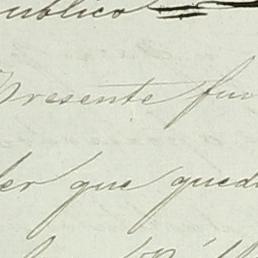 ublico
Presente fui
er que qued